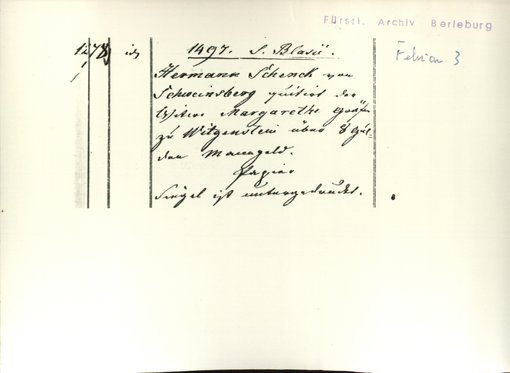 Fürstl. Archiv Berleburg
Februar 3
1497. S. Blasii.
Hermann Schenck von
Schweinsberg quitirt der
Witwe Margarethe Gräfin
zu Witgenstein über 8 Gul-
den Manngeld.
Papier
Siegel ist untergedruckt.